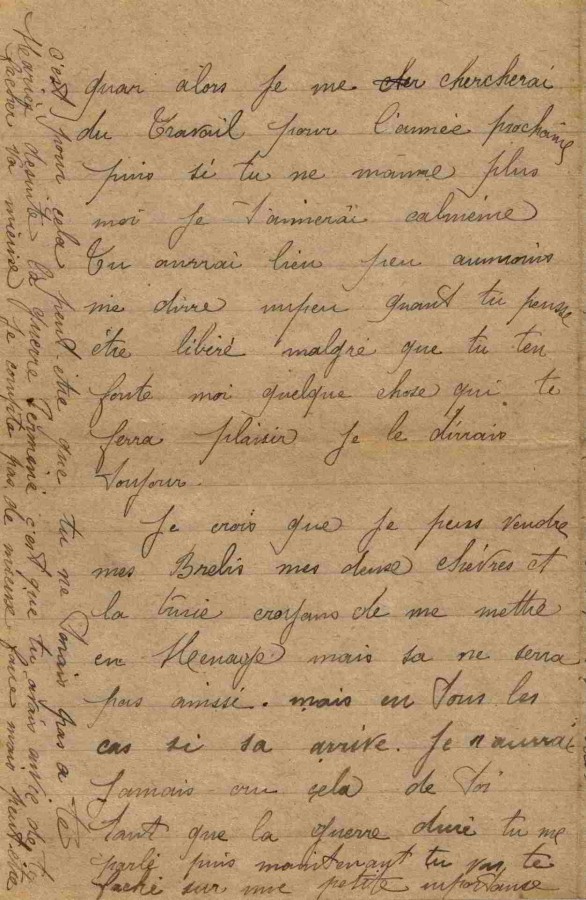 quar alors je me cher chercherai
du Travail pour l'année prochaine
puis si tu ne m'aimme plus
moi je t'aimerai calmême
Tu aurrai bien peu aumoins
me dirre unpeu quant tu pensse
être libéré malgré que tu ten
foute moi quelque chose qui te
ferra plaisir je le dirrais
Toujour.
Je crois que je peus vendre
mes Brebis mes deuse chèvres et
la truie croyans de me mettre
en Menage mais sa ne serra
pas ainssi. mais en Tous les
cas si sa arrive. Je n'aurrai
Jamais cru cela de Toi
Tant que la guerre duré tu me
parlé puis maintenant tu vas te
faché sur une petite importanse
c'est pour cela peut être que tu ne Tenais pas a te
Marier desuite la guerre Terminé c'est que tu avais envie de te
facher va mieme je compte pas de mieux faire mais peut etre